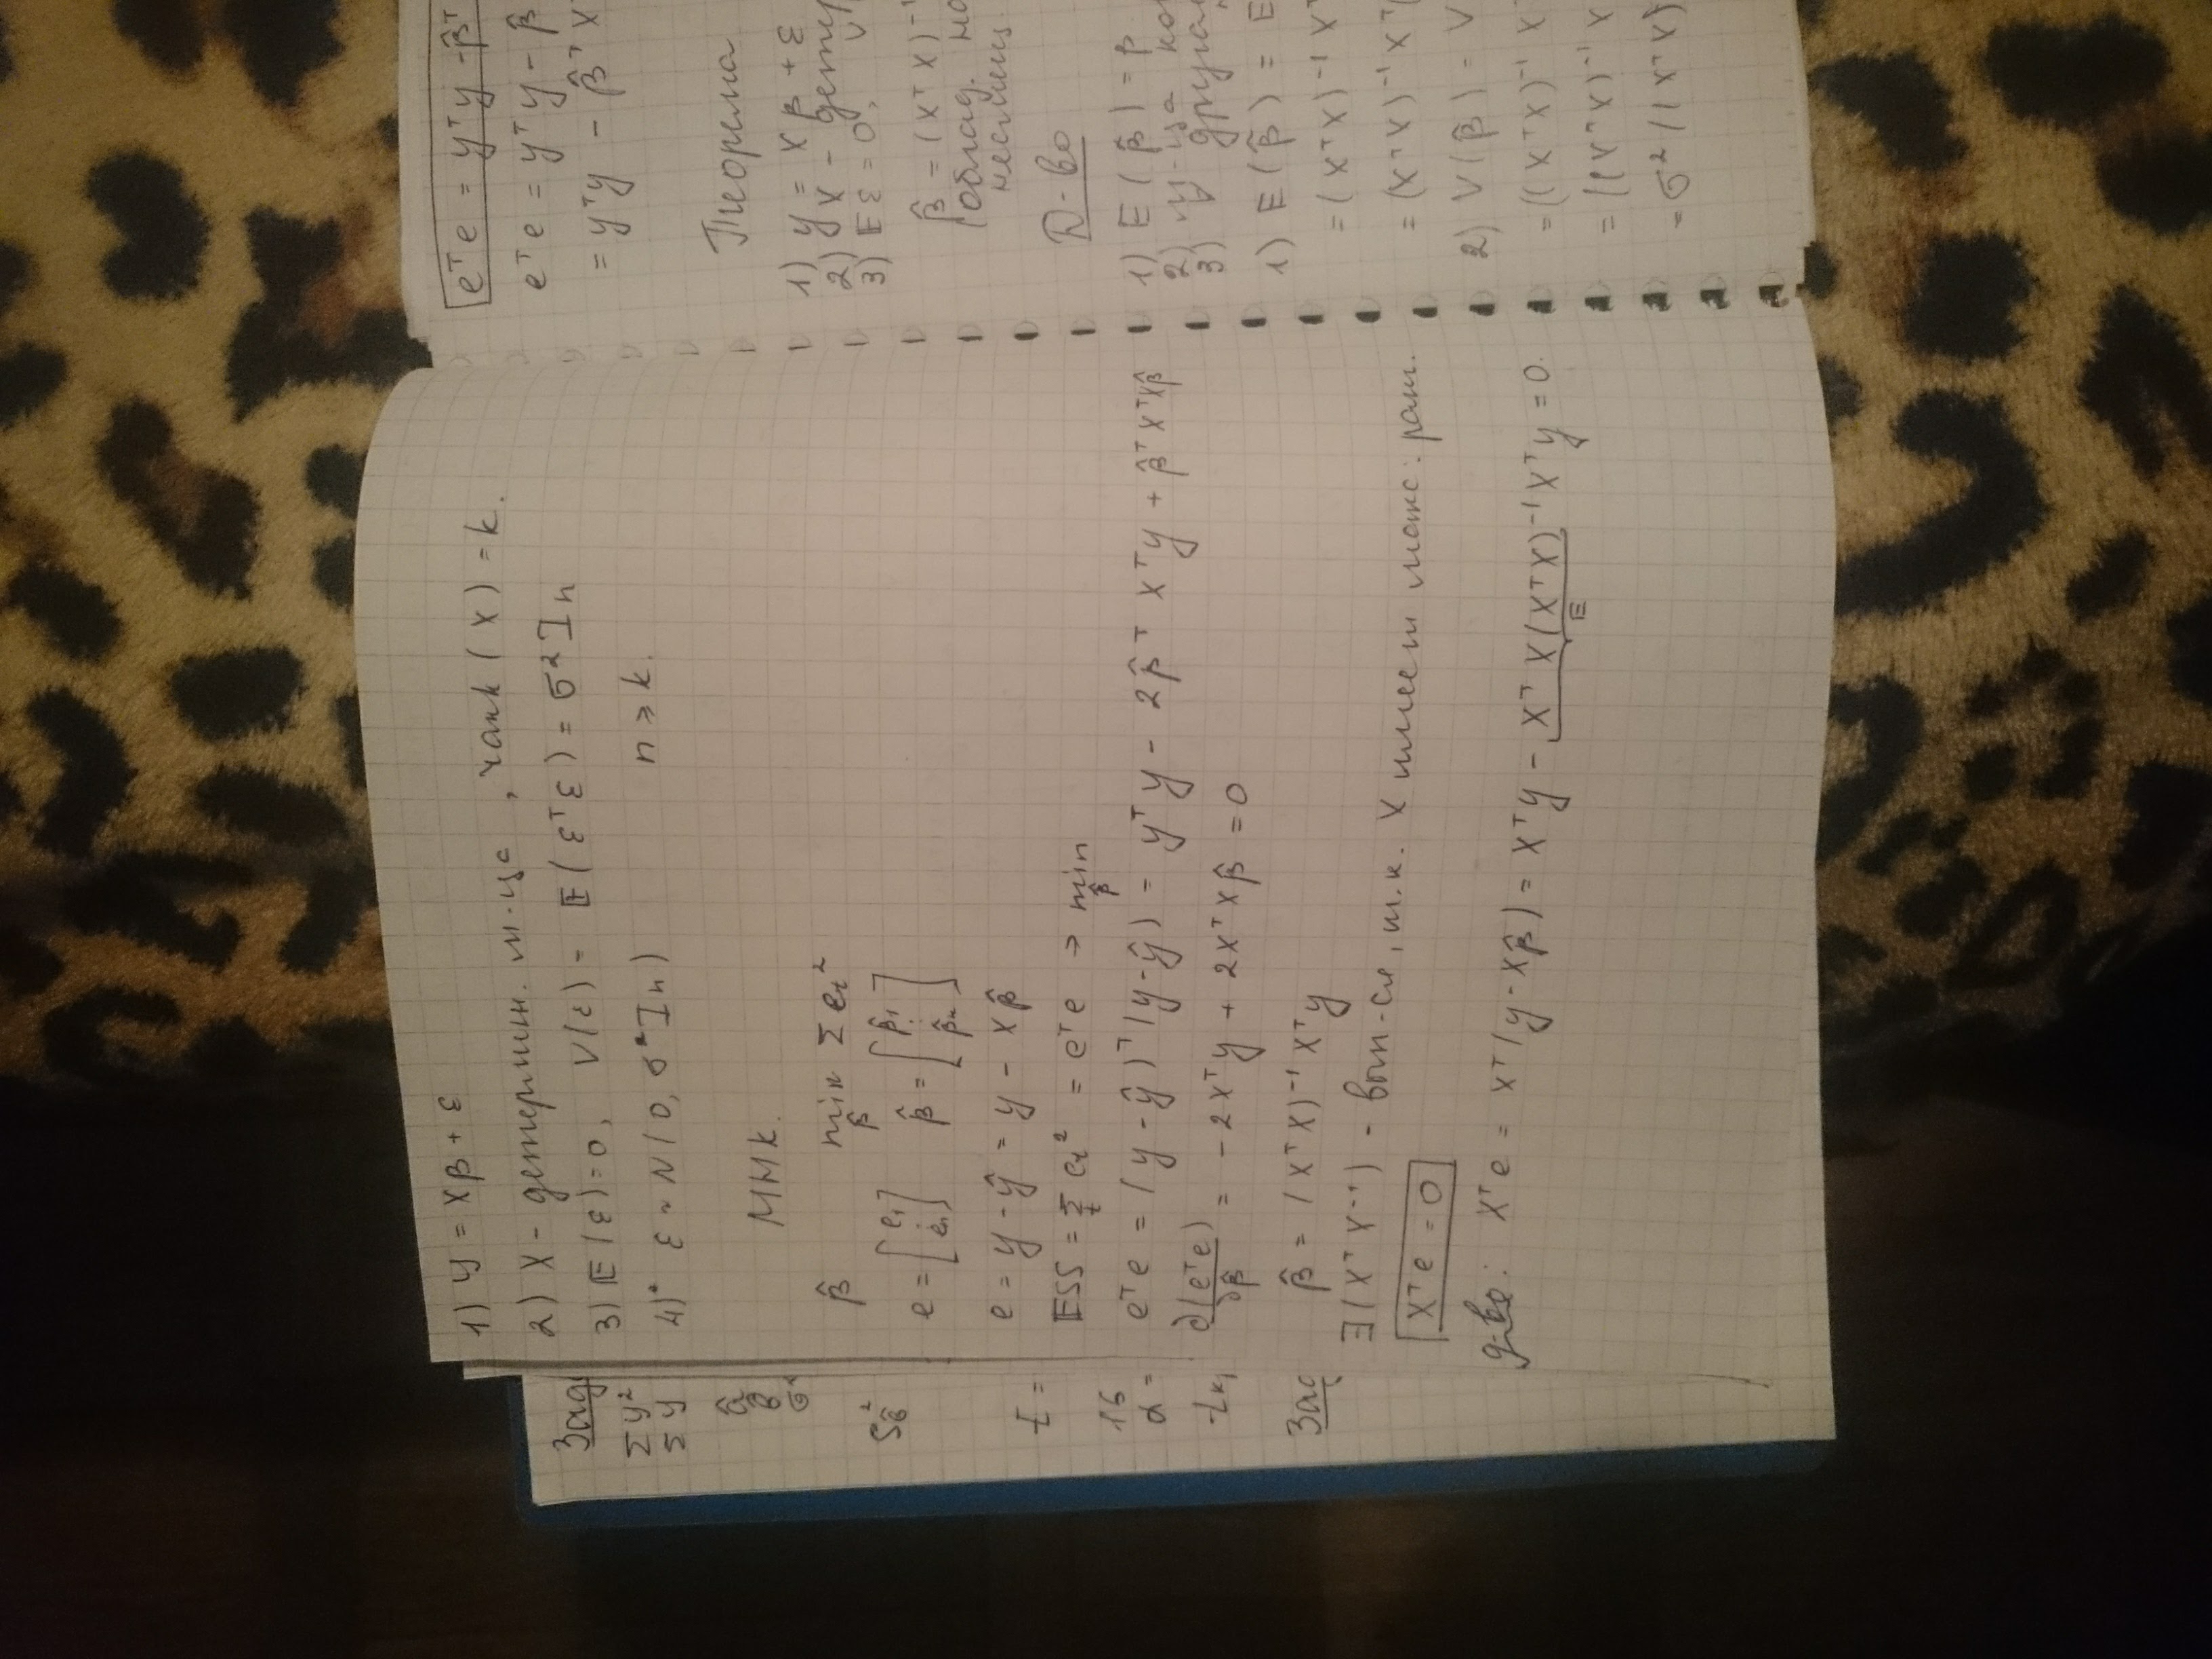 1) y = Xβ + ε
2) X - детермин. м-ца, rank (X) = k.
3) E(ε) = 0, V(ε) = E(ε^T ε) = σ² I n
4)* ε ~ N(0, σ² I n) n > k.
МНК.
β̂ min β̂ Σ e_t²
e = [e_1 ⋮ e_n] β̂ = [β̂_1 ⋮ β̂_k]
e = y - ŷ = y - Xβ̂
ESS = Σ_t e_t² = e^T e → min β̂
e^T e = (y - ŷ)^T (y - ŷ) = y^T y - 2 β̂^T X^T y + β̂^T X^T Xβ̂
∂(e^T e)/∂β̂ = -2X^T y + 2X^T Xβ̂ = 0
β̂ = (X^T X)^-1 X^T y
∃ (X^T X^-1) - вып-ся, т.к. X имеет макс. ранг.
X^T e = 0
д-во: X^T e = X^T (y - Xβ̂) = X^T y - X^T X (X^T X)^-1 X^T y = 0.
E
e^T e = y^T y - β̂^T
e^T e = y^T y - β̂
= y^T y - β̂^T X
Теорема
1) y = Xβ + ε
2) X -
3) Eε = 0, V
β̂ = (X^T X)^-1
облад.
несмещ.
Д-во
1) E(β̂) = β
2)
3)
1) E(β̂) = E
= (X^T X)^-1 X^T
= (X^T X)^-1 X^T(
2) V(β̂) = V
= ((X^T X)^-1 X
= ((X^T X)^-1 X
= σ² ((X^T X)
Σ y²
Σ y
S²_β̂
t =
16
α =